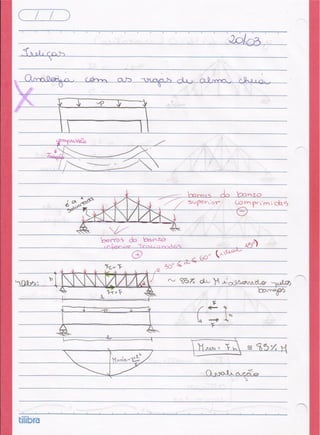 20/03
Treliças
Analogia com as vigas de alma cheia
P
compressão
tração
barras do banzo
superior comprimidas
⊖
barras do banzo
inferior tracionadas
⊕
30° ≤ α ≤ 60° (ideal 45°)
Fc = F
Ft = F
h
l
Obs:
~ 85% de M absorvido pelas
barras
F
F
h
p
l
Mmáx =
Mres = F.h ≅ 85% M
avaliação
tilibra